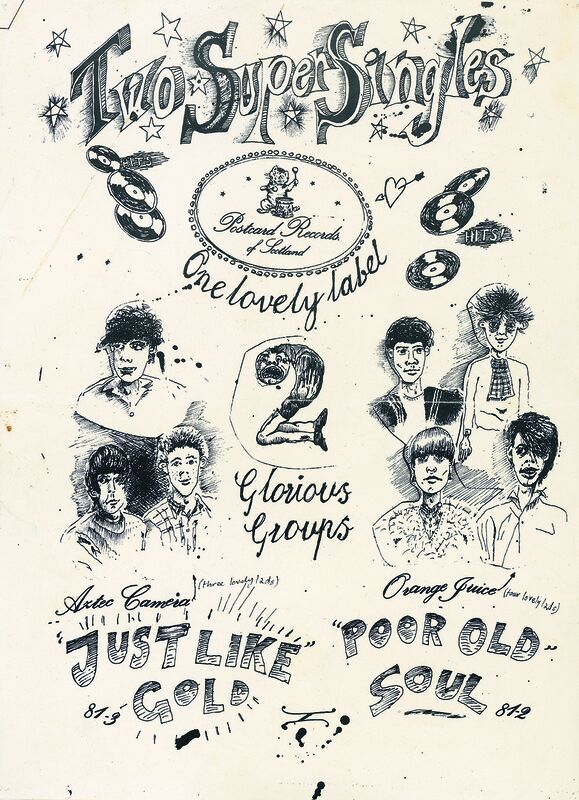 Two Super Singles
HITS
Postcard Records
of Scotland
HITS!
One lovely label
2
Glorious
Groups
Aztec Camera (three lovely lads)
"JUST LIKE
GOLD"
81-3
Orange Juice (four lovely lads)
"POOR OLD
SOUL"
81-2